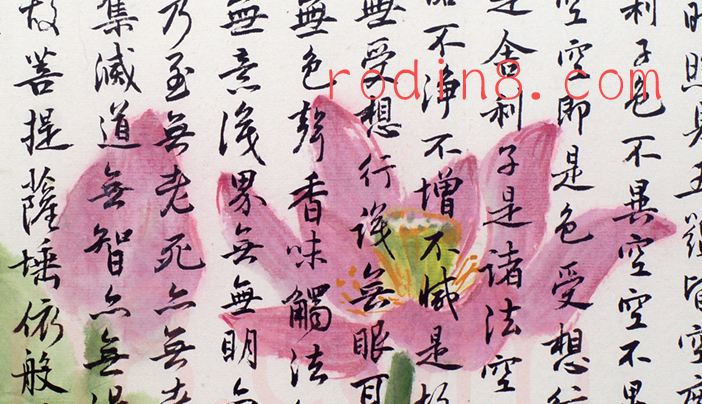 時照見五蘊皆空度
利子色不異空空不異
空空即是色受想行
是舍利子是諸法空
垢不淨不增不減是故
無受想行識無眼耳
無色聲香味觸法
無意識界無無明
乃至無老死亦無老
集滅道無智亦無得
故菩提薩埵依般
rodin8.com